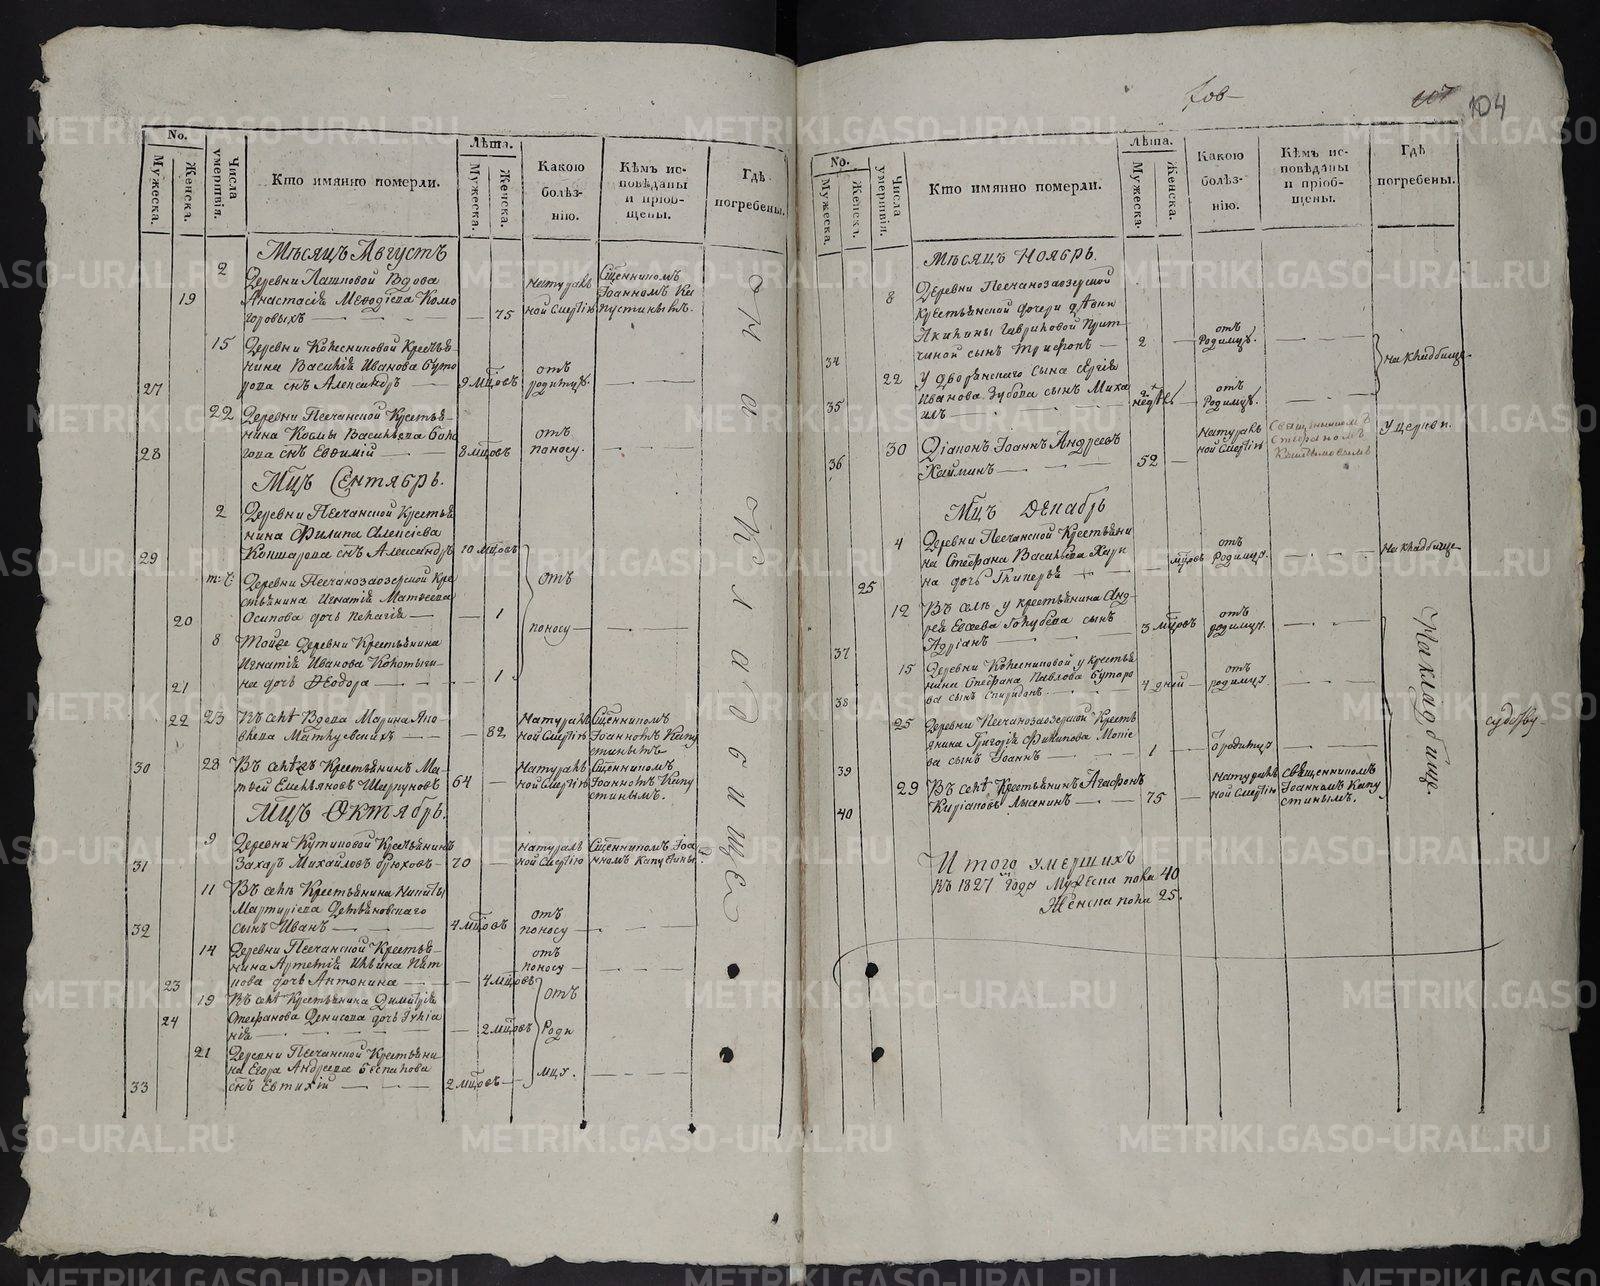 No.
Мужеска.
Женска.
Числа умертвія.
Кто имянно померли.
Лѣта.
Мужеска.
Женска.
Какою болѣз-
нію.
Кѣмъ ис-
повѣданы
и пріоб-
щены.
Гдѣ
погребены.
Мѣсяцъ Августъ
19 2 Деревни Лашповой Вдова
Анастасія Меѳодіева Комо
горовыхъ — 75 натураль
ной Смертію Сщенникомъ
Іоанномъ Ка
пустинымъ.
27 15 Деревни Колесниковой Крестья-
нина Василія Иванова Буто
рова снъ Александръ — 9 мцовъ отъ
родимца.
28 22 Деревни Песчанской Крестья-
нина Космы Васильева
снъ Евѳимій — 8 мцовъ отъ
поносу.
Мцъ Сентябрь.
29 2 Деревни Песчанской Крестья
нина Филипа Алексіева
Кокшарова снъ Александръ 10 мцовъ
20 т: ч: Деревни Песчанозаозерской Кре
стьянина Игнатія Матвеева
Осипова дочь Пелагія — 1
отъ
поносу
21 8 Тойже Деревни Крестьянина
Игнатія Иванова
на дочь Ѳеодора — 1
22 23 Въ селѣ Вдова Марина
— 82 натураль
ной Смертію Сщенникомъ
Іоанномъ Капу
стинымъ
30 28 Въ селѣ Крестьянинъ Ма-
твей Емельяновъ 64 натураль
ной Смертію Сщенникомъ
Іоанномъ Капу
стинымъ.
Мцъ Октябрь.
31 9 Деревни Крестьянинъ
Захаръ Михайловъ Брюховъ — 70 натураль
ной Смертію Сщенникомъ Іоа
нномъ Капустины
32 11 Въ селѣ Крестьянина Никиты
Мартиріева
сынъ Иванъ — 4 мцовъ отъ
поносу
23 14 Деревни Песчанской Крестья-
нина Артемія Ильина
дочь Антонина — 4 мцовъ отъ
поносу
24 19 Въ селѣ Крестьянина Димитрія
Стефанова Денисова дочь
— 2 мцовъ
отъ
Роди
мца.
33 21 Деревни Песчанской Крестьяни
на Егора Андреева
снъ Евтихій — 2 мцовъ
на кладбищѣ
104
No.
Мужеска.
Женска.
Числа умертвія.
Кто имянно померли.
Лѣта.
Мужеска.
Женска.
Какою
болѣз-
нію.
Кѣмъ ис-
повѣданы
и пріоб-
щены.
Гдѣ
погребены.
Мѣсяцъ Ноябрь.
34 8 Деревни Песчанозаозерской
Крестьянской дочери
Акилины Гавриловой
сынъ Трифонъ — 2 отъ
Родимца.
35 22 У дворянскаго Сына Сергія
Иванова Зубова сынъ Миха
илъ — отъ
Родимца.
на кладбище.
36 30 Діаконъ Іоаннъ Андреевъ
Хаймин — 52 натураль
ной Смертію Священникомъ
Стефаномъ
У церкви.
Мцъ Декабрь
25 4 Деревни Песчанской Крестьяни
на Стефана Васильева
на дочь Гликерья — отъ
Родимца.
на кладбище
37 12 Въ селѣ у крестьянина Анд-
рея Евсеева Голубева сынъ
Адріанъ — 3 мцовъ отъ
родимца.
38 15 Деревни Колесниковой у крестья
нина Стефана Павлова Буторо
ва сынъ Спиридонъ — 4 дней отъ
родимца
39 25 Деревни Песчанозаозерской Кресть
янина Григорія Филипова
ва сынъ Іоаннъ — 1
40 29 Въ селѣ Крестьянинъ Агафонъ
Киріаковъ Лысенинъ — 75 натураль
ной Смертію священникомъ
Іоанномъ Капу
стинымъ.
На кладбище.
Итого умершихъ
въ 1827 годѣ Мужеска пола 40
Женска пола 25.